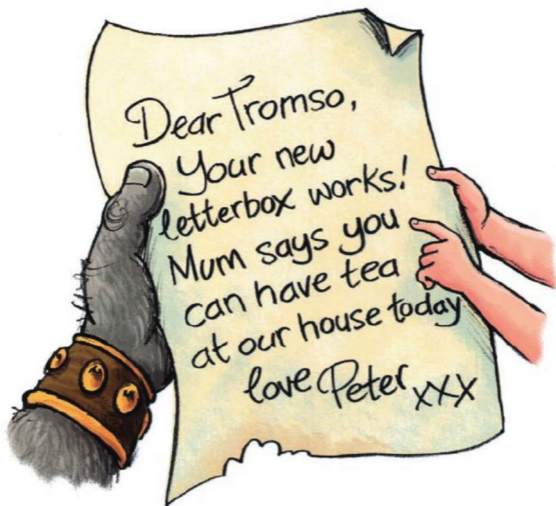 Dear Tromso,
Your new
letterbox works!
Mum says you
can have tea
at our house today
love Peter xxx